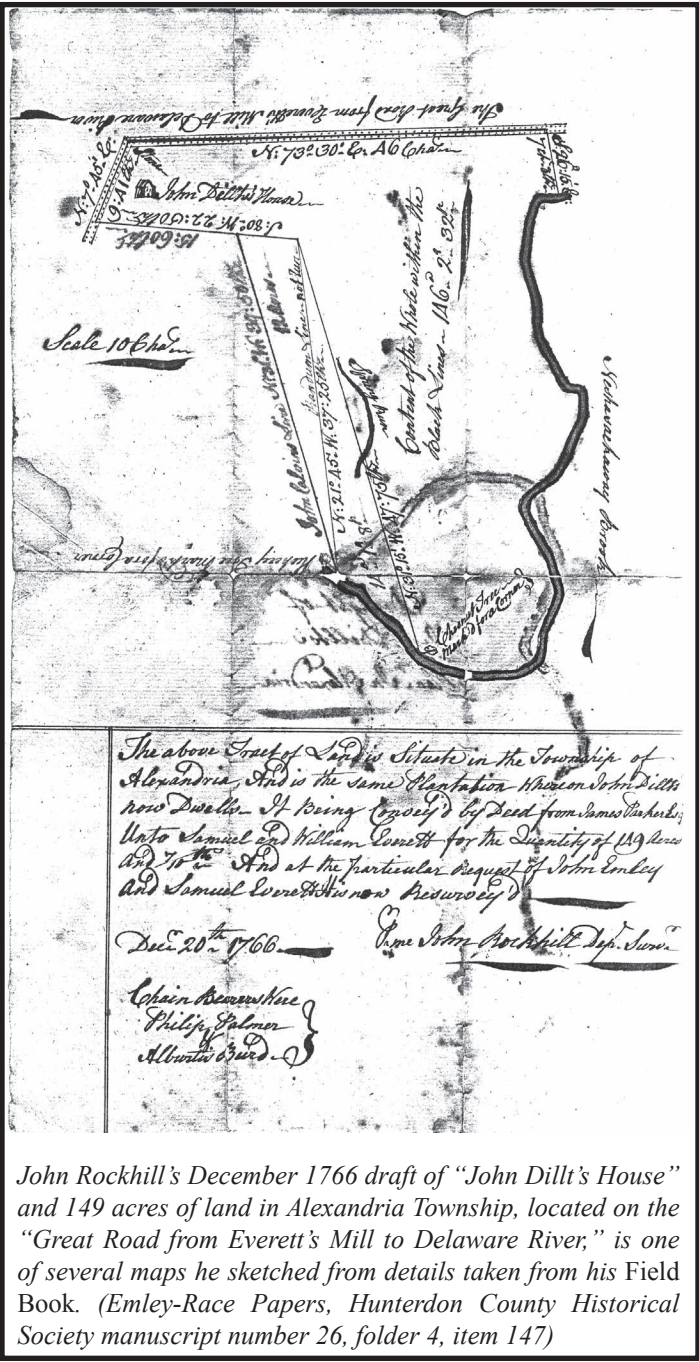 The Great Road from Everett's Mill to Delaware River
N: 73°: 30': E: 46 Chas
John Dillts House
S: 80°: W: 22: 50 Lks
15: 60 Lks
Scale 10 Chas
John Calvins Line N: 31°: W: 39: 50 Lks
Random Line not
N: 21°: 45': W: 37: 25 Lks
N: 31°: 15': W: 47: 75 Lks
Content of the Whole within the
Black Lines – 146a: 2r: 32p
Hickory Tree Mark'd for a Corner
Chesnut Tree
Mark'd for a Corner
Brook
The above Tract of Land is Situate in the Township of
Alexandria, And is the same Plantation Whereon John Dillts
now Dwells – It Being Convey'd by Deed from James Parker Esq
Unto Samuel and William Everett for the Quantity of 149 Acres
and 70ths And at the particular Request of John Emley
And Samuel Everett His now Resurvey'd
Decr 20th 1766
Pr me John Rockhill Depy Survr
Chain Bearers Were
Philip Palmer
&
Alburtis Burd
John Rockhill's December 1766 draft of “John Dillt's House”
and 149 acres of land in Alexandria Township, located on the
“Great Road from Everett's Mill to Delaware River,” is one
of several maps he sketched from details taken from his Field
Book. (Emley-Race Papers, Hunterdon County Historical
Society manuscript number 26, folder 4, item 147)